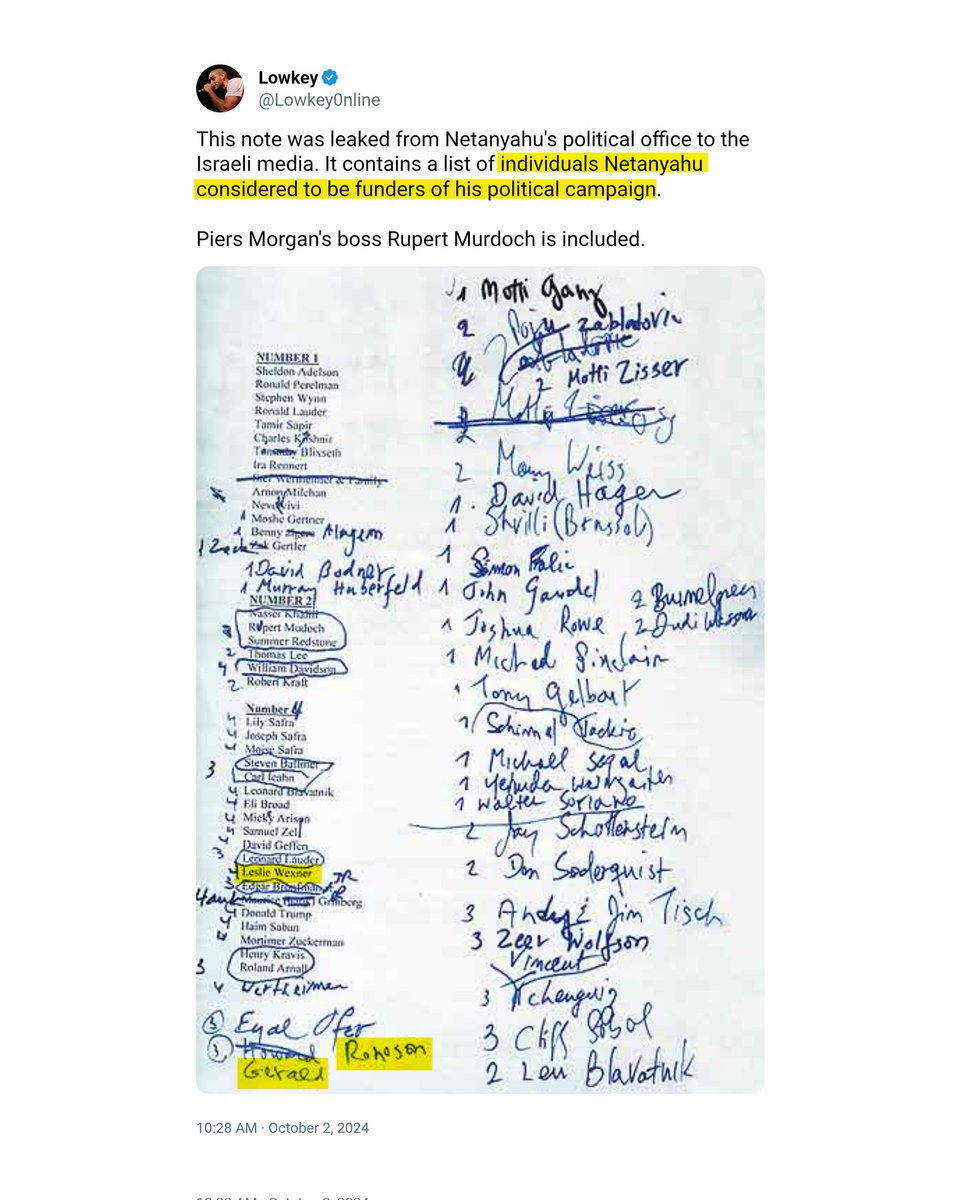 Lowkey
@Lowkey0nline
This note was leaked from Netanyahu's political office to the
Israeli media. It contains a list of individuals Netanyahu
considered to be funders of his political campaign.
Piers Morgan's boss Rupert Murdoch is included.
NUMBER 1
Sheldon Adelson
Ronald Perelman
Stephen Wynn
Ronald Lauder
Tamir Sapir
Charles Kushnir
Blixseth
Ira Rennert
Stef Wertheimer & Family
Arnon Milchan
Moshe Gertner
1 Benny Alagem
1 Zack Gertler
1 David Bodner
1 Murray Huberfeld
NUMBER 2
Nasser Khalili
Rupert Mudoch
Summer Redstone
2 Thomas Lee
4 William Davidson
2 Robert Kraft
Number 4
4 Lily Safra
4 Joseph Safra
4 Moise Safra
3 Steven Ballmer
Carl Icahn
4 Leonard Blavatnik
4 Eli Broad
4 Micky Arison
4 Samuel Zell
David Geffen
3 Leonard Lauder
4 Leslie Wexner JR
3 Edgar Bronfman JR
Greenberg
4 Donald Trump
4 Haim Saban
Mortimer Zuckerman
Henry Kravis
3 Roland Arnall
4 Wertheimer
3 Eyal Ofer
Howard
Gerald Ronson
1 Motti Ganz
2 Poju Zabladovic
2 Motti Zisser
2 Weiss
1. David Hager
1 (Brussol)
1 Simon Falic
1 John Gandel
1 Joshua Rowe
2
2 Dudi
1 Michael Sinclair
1 Tony Gelbart
1 Schimmel Jackie
1 Michael Segal
1 Yehuda Weingarten
1 Walter Soriano
2 Jay Schottenstein
2 Don Soderquist
3 Andy & Jim Tisch
3 Zeev Wolfson
Vincent
3 Tchenguiz
3 Cliff Sobol
2 Len Blavatnik
10:28 AM · October 2, 2024